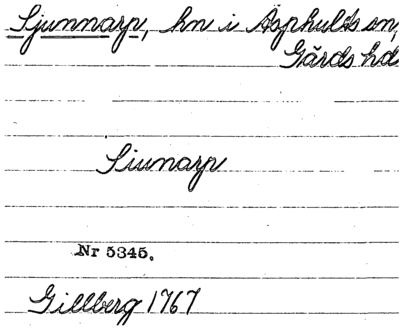 Sjunnarp, hn i Äsphults sn,
Gärds hd
Siunarp
Nr 5345.
Gillberg 1767